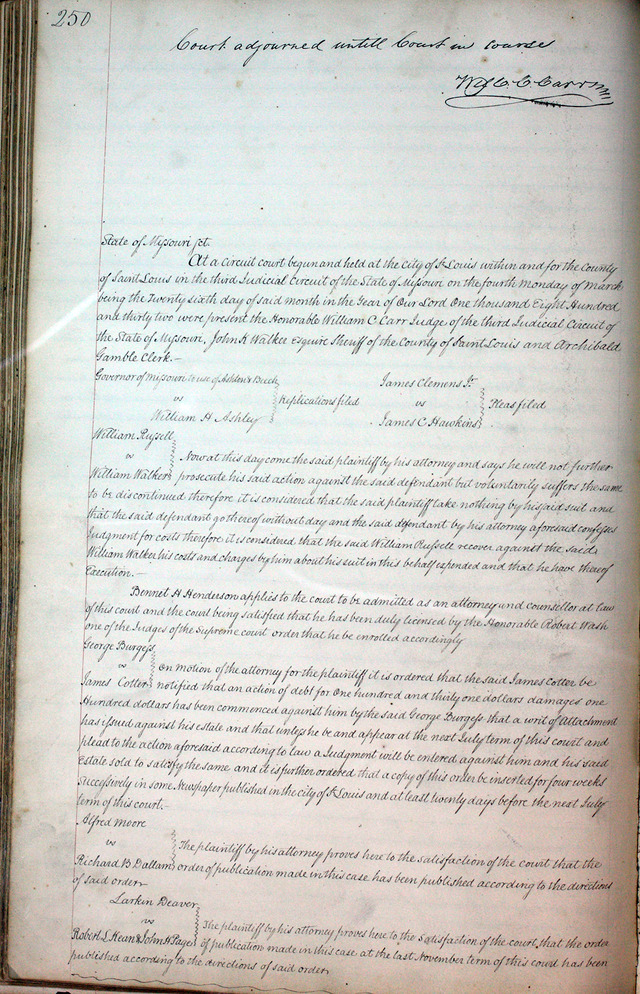 250
Court adjourned untill Court in course
Wm C. Carr
State of Missouri sct.
At a circuit court begun and held at the City of St Louis within and for the County
of Saint Louis in the third Judicial Circuit of the State of Missouri on the fourth Monday of March
being the Twenty sixth day of said month in the Year of Our Lord One thousand Eight Hundred
and thirty two were present the Honorable William C Carr Judge of the third Judicial Circuit of
the State of Missouri, John K Walker Esquire Sheriff of the County of Saint Louis and Archibald
Gamble Clerk.—
Governor of Missouri to use of Ashton & Beck
vs
William H Ashley
Replications filed
James Clemens Jr.
vs
James C Hawkins
Pleas filed
William Russell
vs
William Walker
Now at this day come the said plaintiff by his attorney and says he will not further
prosecute his said action against the said defendant but voluntarily suffers the same
to be discontinued therefore it is considered that the said plaintiff take nothing by his said suit and
that the said defendant go thereof without day and the said defendant by his attorney aforesaid confesses
Judgment for costs therefore it is considered that the said William Russell recover against the said
William Walker his costs and charges by him about his suit in this behalf expended and that he have thereof
Execution.—
Bennet H Henderson applies to the court to be admitted as an attorney and counsellor at law
of this court and the court being satisfied that he has been duly licensed by the Honorable Robert Wash
one of the Judges of the Supreme court order that he be enrolled accordingly
George Burgess
vs
James Cotter
On motion of the attorney for the plaintiff it is ordered that the said James Cotter be
notified that an action of debt for One hundred and thirty one dollars damages one
Hundred dollars has been commenced against him by the said George Burgess that a writ of Attachment
has issued against his estate and that unless he be and appear at the next July term of this court and
plead to the action aforesaid according to law a Judgment will be entered against him and his said
Estate sold to satisfy the same and it is further ordered that a copy of this order be inserted for four weeks
successively in some Newspaper published in the city of St Louis and at least twenty days before the next July
term of this court.—
Alfred Moore
vs
Richard B Dallam
The plaintiff by his attorney proves here to the satisfaction of the court that the
order of publication made in this case has been published according to the directions
of said order
Larkin Deaver
vs
Robert L Hean & John H Page
The plaintiff by his attorney proves here to the satisfaction of the court, that the order
of publication made in this case at the last November term of this court has been
published according to the directions of said order